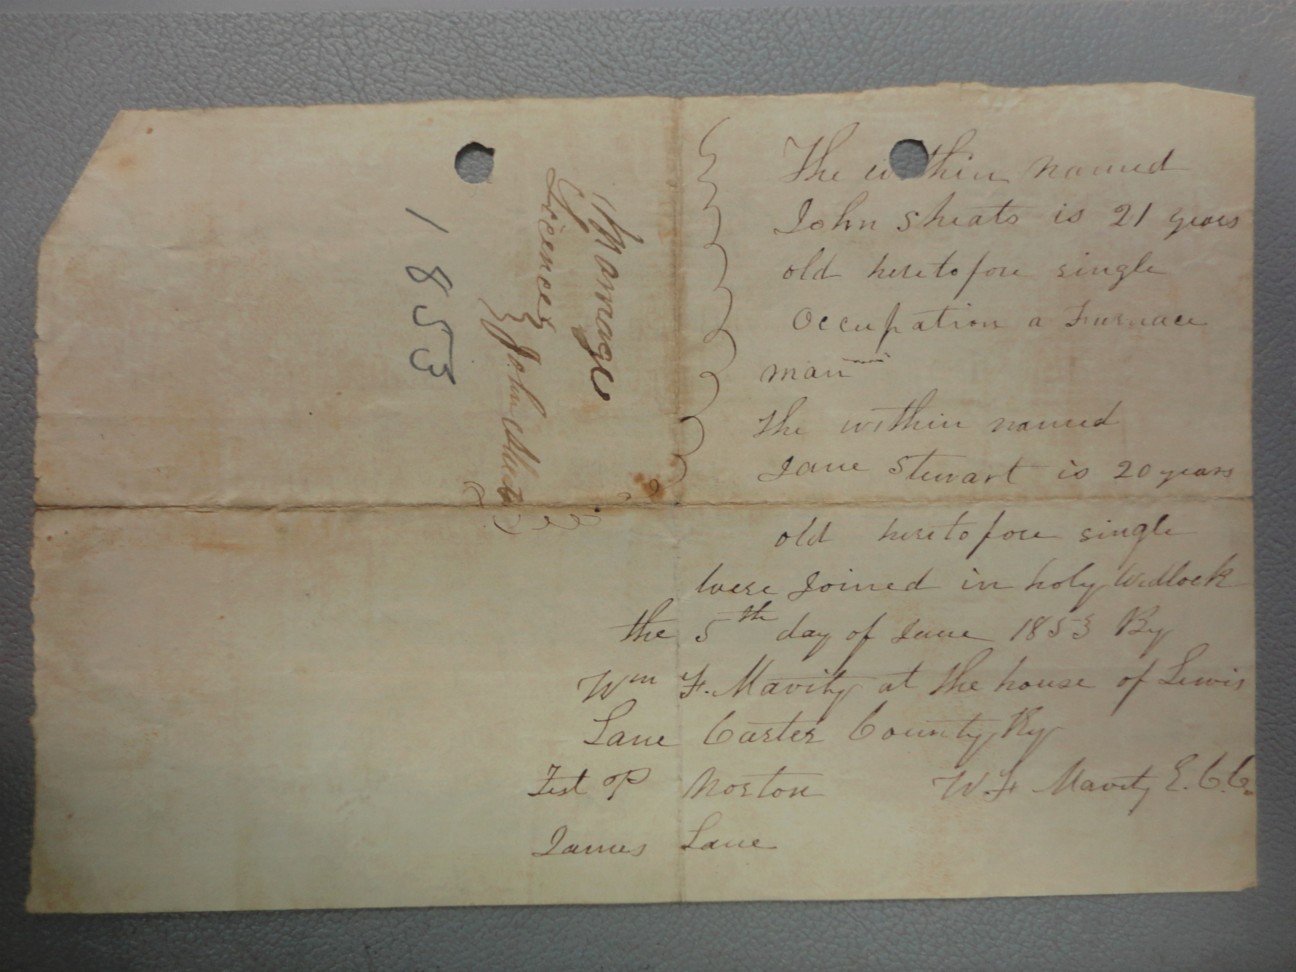 Marriage
Licence
John Sheats
1853
The within named
John Sheats is 21 years
old heretofore single
Occupation a Furnace
man
The within named
Jane Stewart is 20 years
old heretofore single
were Joined in holy Wedlock
the 5th day of June 1853 By
Wm F. Mavity at the house of Lewis
Lane Carter County Ky
Test P Norton W. F Mavity E. C. C.
James Lane